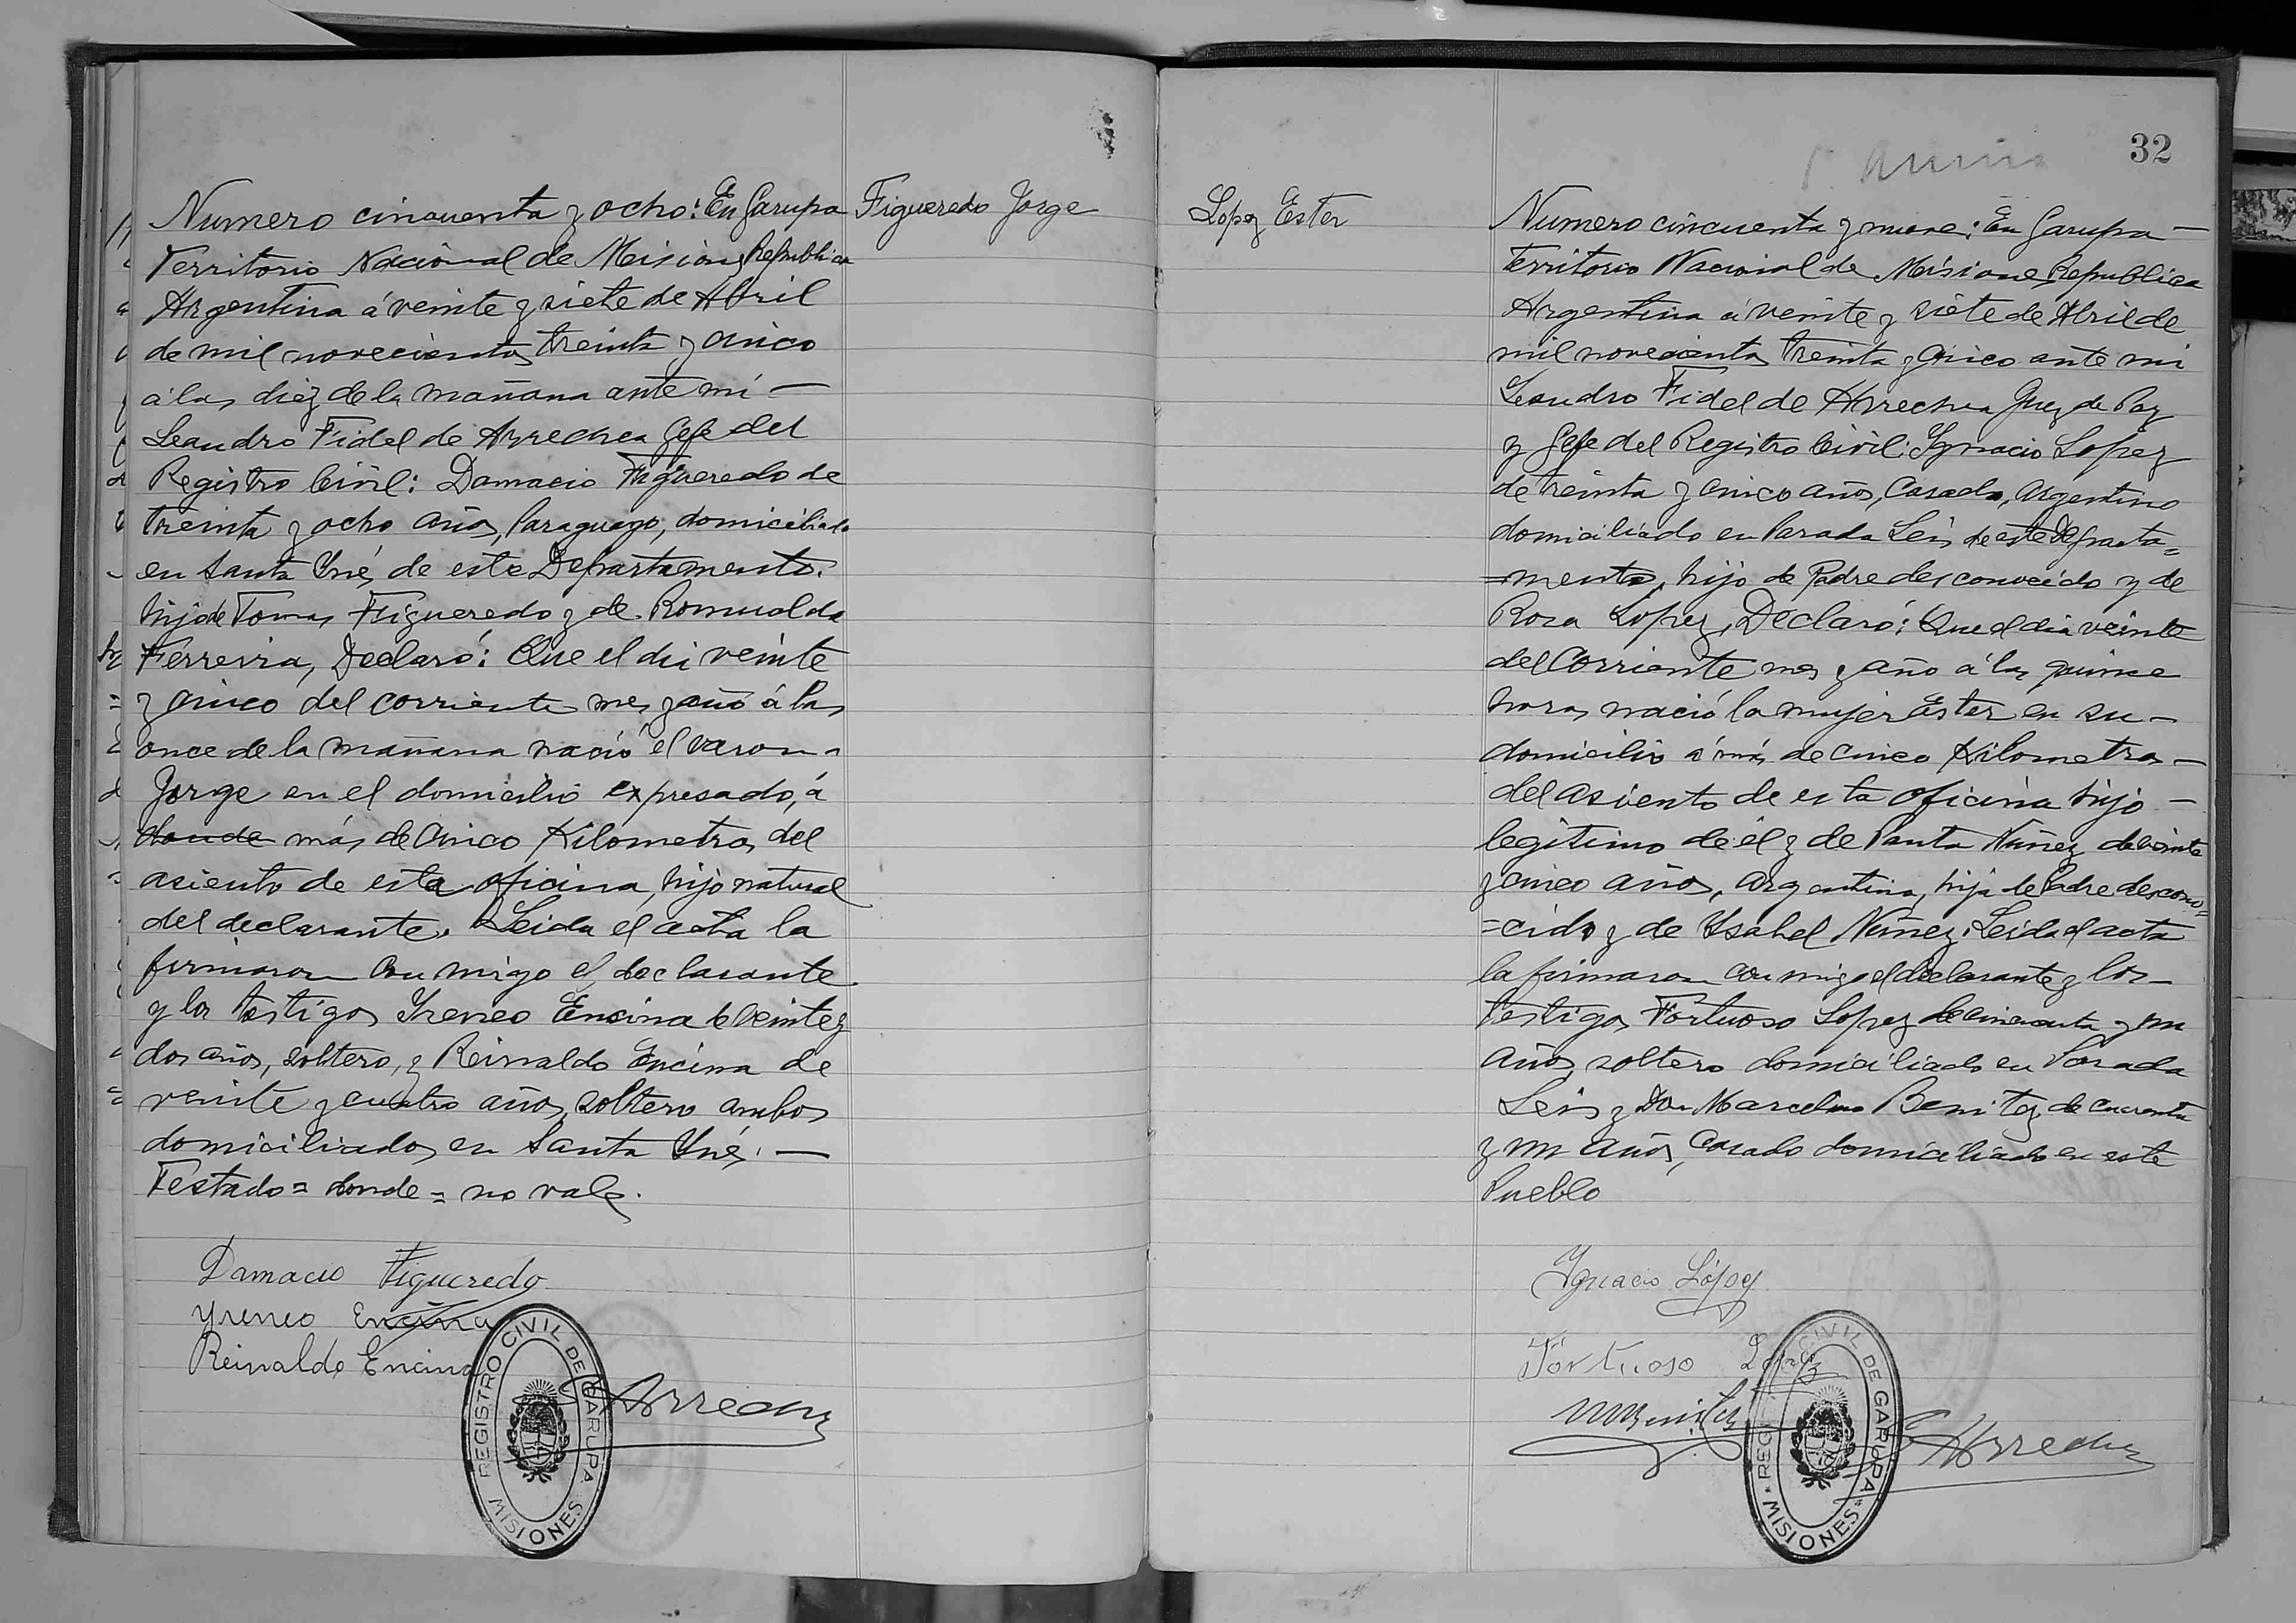 Numero cincuenta y ocho: En Garupa
Territorio Nacional de Misiones Republica
Argentina á veinte y siete de Abril
de mil novecientos treinta y cinco
á las diez de la mañana ante mí —
Leandro Fidel de Arrechea Gefe del
Registro Civil: Damacio Figueredo de
treinta y ocho años, Paraguayo, domiciliado
en Santa Ynés de este Departamento.
hijo de Tomas Figueredo y de Romualda
Ferreira, Declaró: Que el dia veinte
y cinco del corriente mes y año á las
once de la mañana nació el varon
Jorge en el domicilio expresado, á
donde más de cinco Kilometros del
asiento de esta oficina, hijo natural
del declarante. Leida el acta la
firmaron con migo el declarante
y los testigos Yreneo Encina de veinte y
dos años, soltero, y Reinaldo Encina de
veinte y cuatro años, soltero ambos
domiciliados en Santa Ynés. —
Testado = donde = no vale.
Figueredo Jorge
Damacio Figueredo
Yreneo Encina
Reinaldo Encina
Arrechea
REGISTRO CIVIL DE GARUPA
MISIONES
32
Lopez Ester
Numero cincuenta y nueve: En Garupa —
Territorio Nacional de Misiones Republica
Argentina á veinte y siete de Abril de
mil novecientos treinta y cinco ante mi
Leandro Fidel de Arrechea Juez de Paz
y Gefe del Registro Civil: Ygnacio Lopez
de treinta y cinco años, Casado, Argentino
domiciliado en Parada Leis de este Departa=
=mento, hijo de Padre desconocido y de
Rosa López, Declaró: Que el dia veinte
del Corriente mes y año á las quince
horas nació la mujer Ester en su —
domicilio á más de cinco Kilometros —
del asiento de esta oficina hijo —
legitimo de él y de Santa Núñez de veinte
y cinco años, argentina, hija de Padre descono=
=cido y de Ysabel Núñez. Leida el acta
la firmaron con migo el declarante y los —
testigos Fortuoso Lopez de cincuenta y un
años, soltero domiciliado en Parada
Leis y Don Marcelino Benitez de cuarenta
y un años, Casado domiciliado en este
Pueblo
Ygnacio López
Fortuoso Lopez
MBenitez
Arrechea
REGISTRO CIVIL DE GARUPA
MISIONES